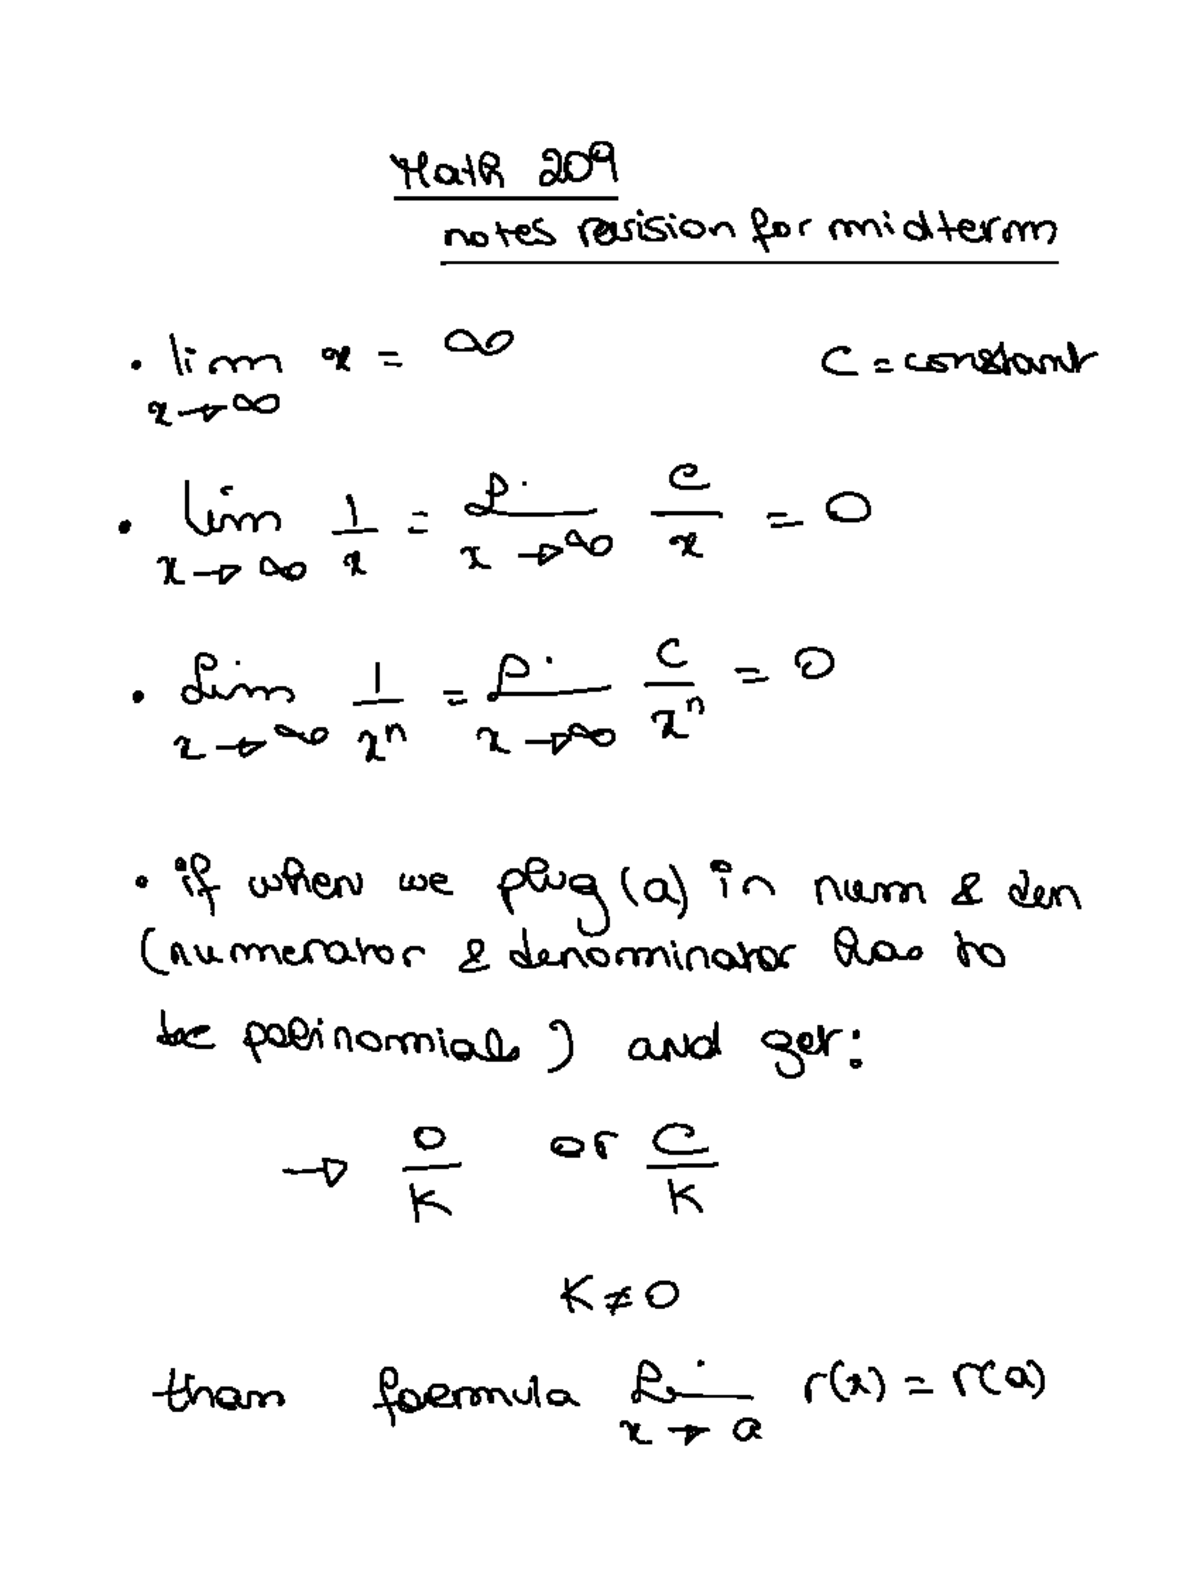 Math 209
notes revision for midterm
• lim x = ∞ C = constant
x→∞
• lim 1/x = li__ C/x = 0
x→∞ x→∞
• lim 1/xⁿ = li__ C/xⁿ = 0
x→∞ x→∞
• if when we plug (a) in num & den
(numerator & denominator has to
be polinomials) and get:
→ 0/K or C/K
K ≠ 0
than formula li__ r(x) = r(a)
x → a